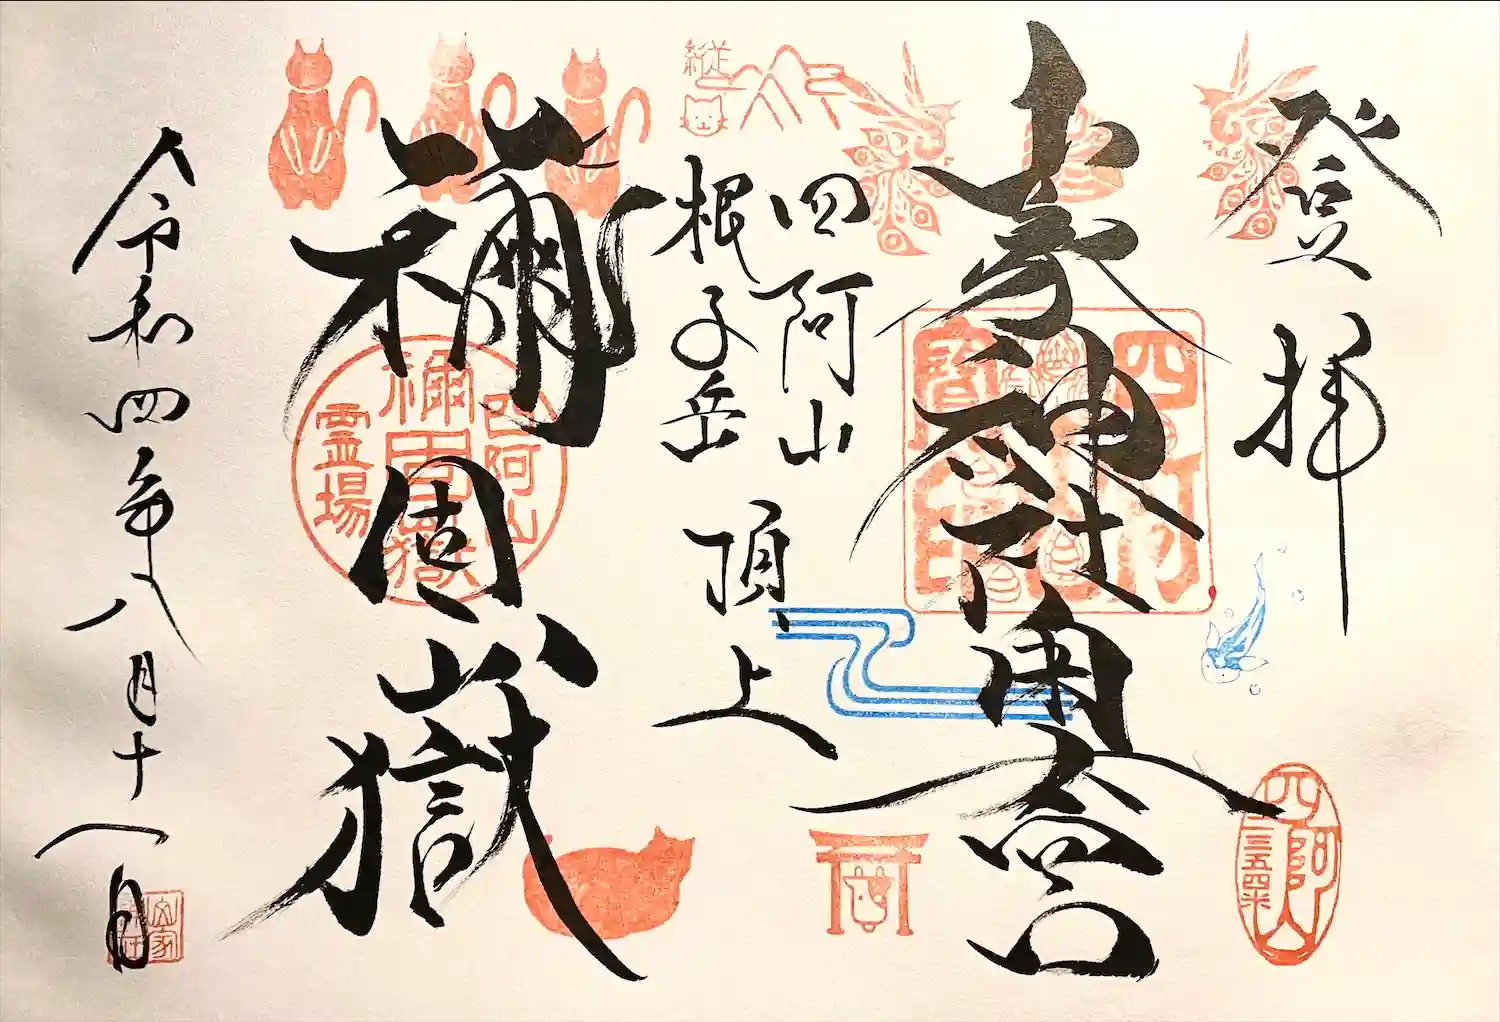 登拝
山家神社奥宮
四阿山
根子岳
頂上
禰固嶽
令和四年八月十一日
縦走
四阿山
禰固嶽
霊場
四阿山
二三五四米